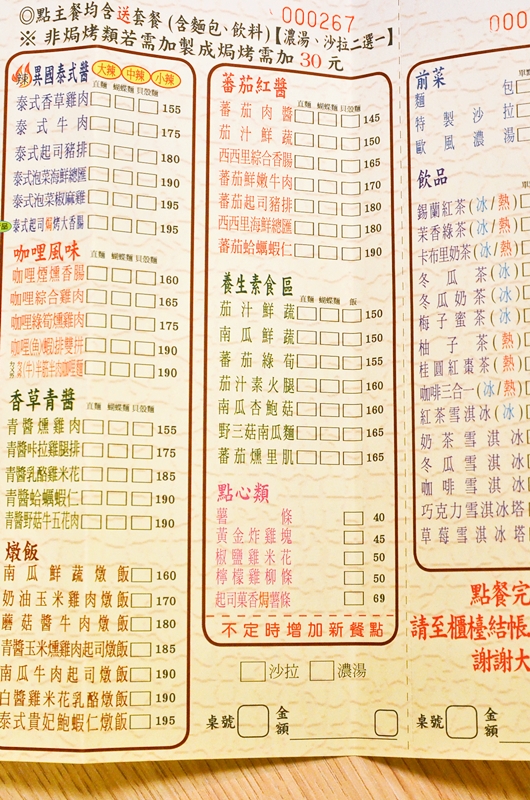 ◎點主餐均含送套餐(含麵包、飲料)【濃湯、沙拉二選一】
000267
※ 非焗烤類若需加製成焗烤需加 30 元
辣 異國泰式醬 大辣 中辣 小辣
直麵 蝴蝶麵 貝殼麵
泰式香草雞肉 155
泰式牛肉 175
泰式起司豬排 180
泰式泡菜海鮮總匯 190
泰式泡菜椒麻雞 195
泰式起司焗烤大香腸 195
咖哩風味
直麵 蝴蝶麵 貝殼麵
咖哩煙燻香腸 160
咖哩綜合雞肉 165
咖哩綠筍燻雞肉 175
咖哩(魚)蝦排雙拼 190
190
香草青醬
直麵 蝴蝶麵 貝殼麵
青醬燻雞肉 155
青醬咔拉雞腿排 175
青醬乳酪雞米花 185
青醬蛤蠣蝦仁 190
青醬野菇牛五花肉 190
燉飯
南瓜鮮蔬燉飯 160
奶油玉米雞肉燉飯 170
蘑菇醬牛肉燉飯 180
青醬玉米雞肉起司燉飯 185
南瓜牛肉起司燉飯 190
白醬雞米花乳酪燉飯 190
泰式貴妃鮑蝦仁燉飯 195
蕃茄紅醬
直麵 蝴蝶麵 貝殼麵
蕃茄肉醬 145
茄汁鮮蔬 150
西西里綜合香腸 165
蕃茄鮮嫩牛肉 170
蕃茄起司豬排 180
西西里海鮮總匯 180
蕃茄蛤蠣蝦仁 190
養生素食區
直麵 蝴蝶麵 飯
茄汁鮮蔬 150
南瓜鮮蔬 150
蕃茄綠筍 150
茄汁素火腿 160
南瓜杏鮑菇 160
野三菇南瓜麵 165
蕃茄燻里肌 165
點心類
薯條 40
黃金炸雞塊 45
椒鹽雞米花 50
檸檬雞柳條 50
起司菓香焗薯條 69
不定時增加新餐點
沙拉 濃湯
桌號 金額
000
前菜
麵包
特製沙拉
歐風濃湯
飲品
錫蘭紅茶(冰/熱)
茉香綠茶(冰/熱)
卡布里奶茶(冰/熱)
冬瓜茶(冰/熱)
冬瓜奶茶(冰/熱)
梅子蜜茶(冰/熱)
柚子茶(熱)
桂圓紅棗茶(熱)
咖啡三合一(冰/熱)
紅茶雪淇冰(冰)
奶茶雪淇冰
冬瓜雪淇冰
咖啡雪淇冰
巧克力雪淇冰塔
草莓雪淇冰塔
點餐完
請至櫃檯結帳
謝謝大
桌號 金額